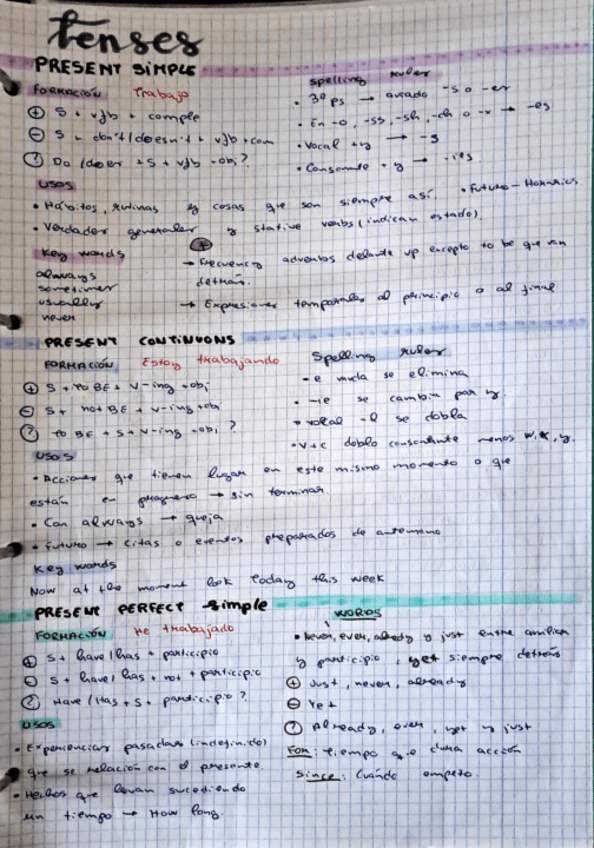 Tenses
PRESENT SIMPLE
FORMACIÓN Trabajo
+ S + vfb + comple
- S + don't/doesn't + vfb + com
? Do/does + S + vfb + obj?
Spelling rules
• 3ª ps → añado -s o -es
• En -o, -ss, -sh, -ch o -x → -es
• Vocal + y → -s
• Consonante + y → -ies
USOS
• Hábitos, rutinas y cosas que son siempre así. • Futuro - Horarios
• Verdades generales y stative verbs (indican estado)
Key words
always
sometimes
usually
never
+
→ Frecuency adverbs delante vp excepto to be que van
detrás.
→ Expresiones temporales al principio o al final
PRESENT CONTINUONS
FORMACIÓN Estoy trabajando
+ S + to BE + V-ing + obj
- S + not BE + V-ing + obj
? to BE + S + V-ing + obj ?
Spelling rules
-e muda se elimina
- -ie se cambia por y.
- vocal -l se dobla
• V+C doblo consonante menos w, x, y.
USOS
• Acciones que tienen lugar en este mismo momento o que
están en progreso → sin terminar
• Con always → queja
• Futuro → citas o eventos preparados de antemano
Key words
Now at the moment look today this week
PRESENT PERFECT simple
FORMACIÓN He trabajado
+ S + have/has + participio
- S + have/has + not + participio
? Have/Has + S + participio ?
USOS
• Experiencias pasadas (indefinido)
que se relación con el presente.
• Hechos que llevan sucediendo
un tiempo → How long.
WORDS
• Never, ever, already y just entre auxiliar
y participio, yet siempre detrás
+ Just, never, already
- Yet
? Already, ever, yet y just
FOR: tiempo que dura acción
Since: Cuándo empezó.